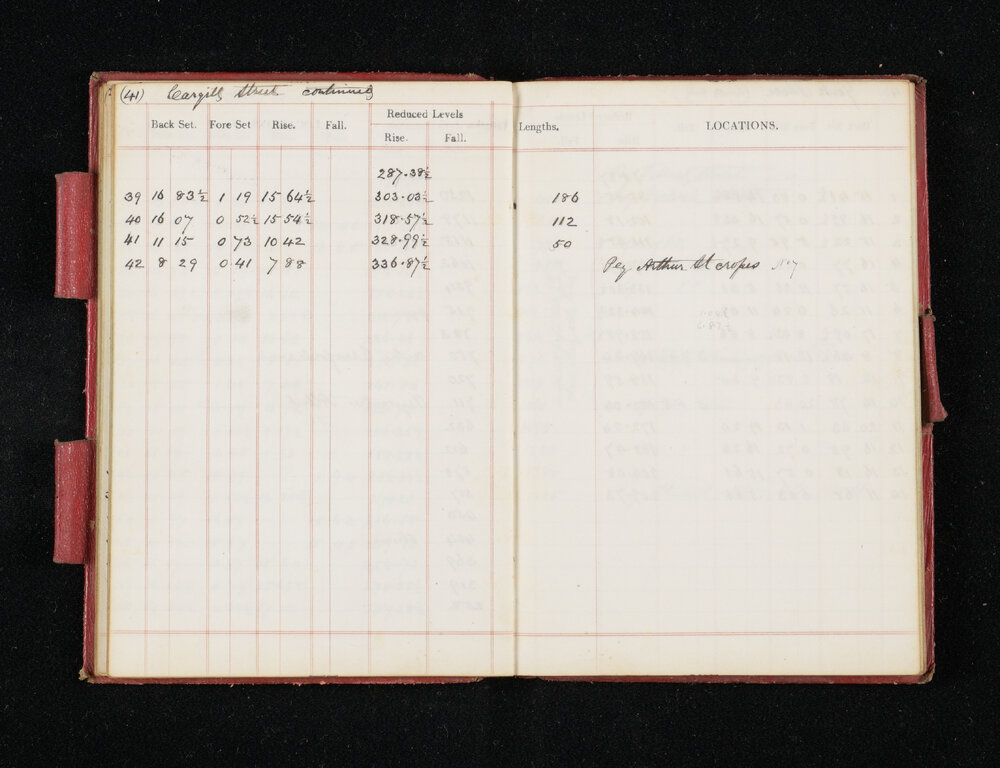 (41) Cargill Street continued
Back Set. Fore Set Rise. Fall. Reduced Levels Lengths. LOCATIONS.
Rise. Fall.
287.38½
39 16 83½ 1 19 15 64½ 303.03½ 186
40 16 07 0 52½ 15 54½ 318.57½ 112
41 11 15 0 73 10 42 328.99½ 50
42 8 29 0 41 7 88 336.87½ Peg Arthur St